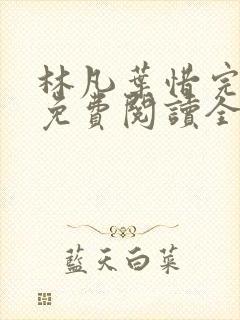 林凡葉惜完
免費閱讀全
藍天白菜